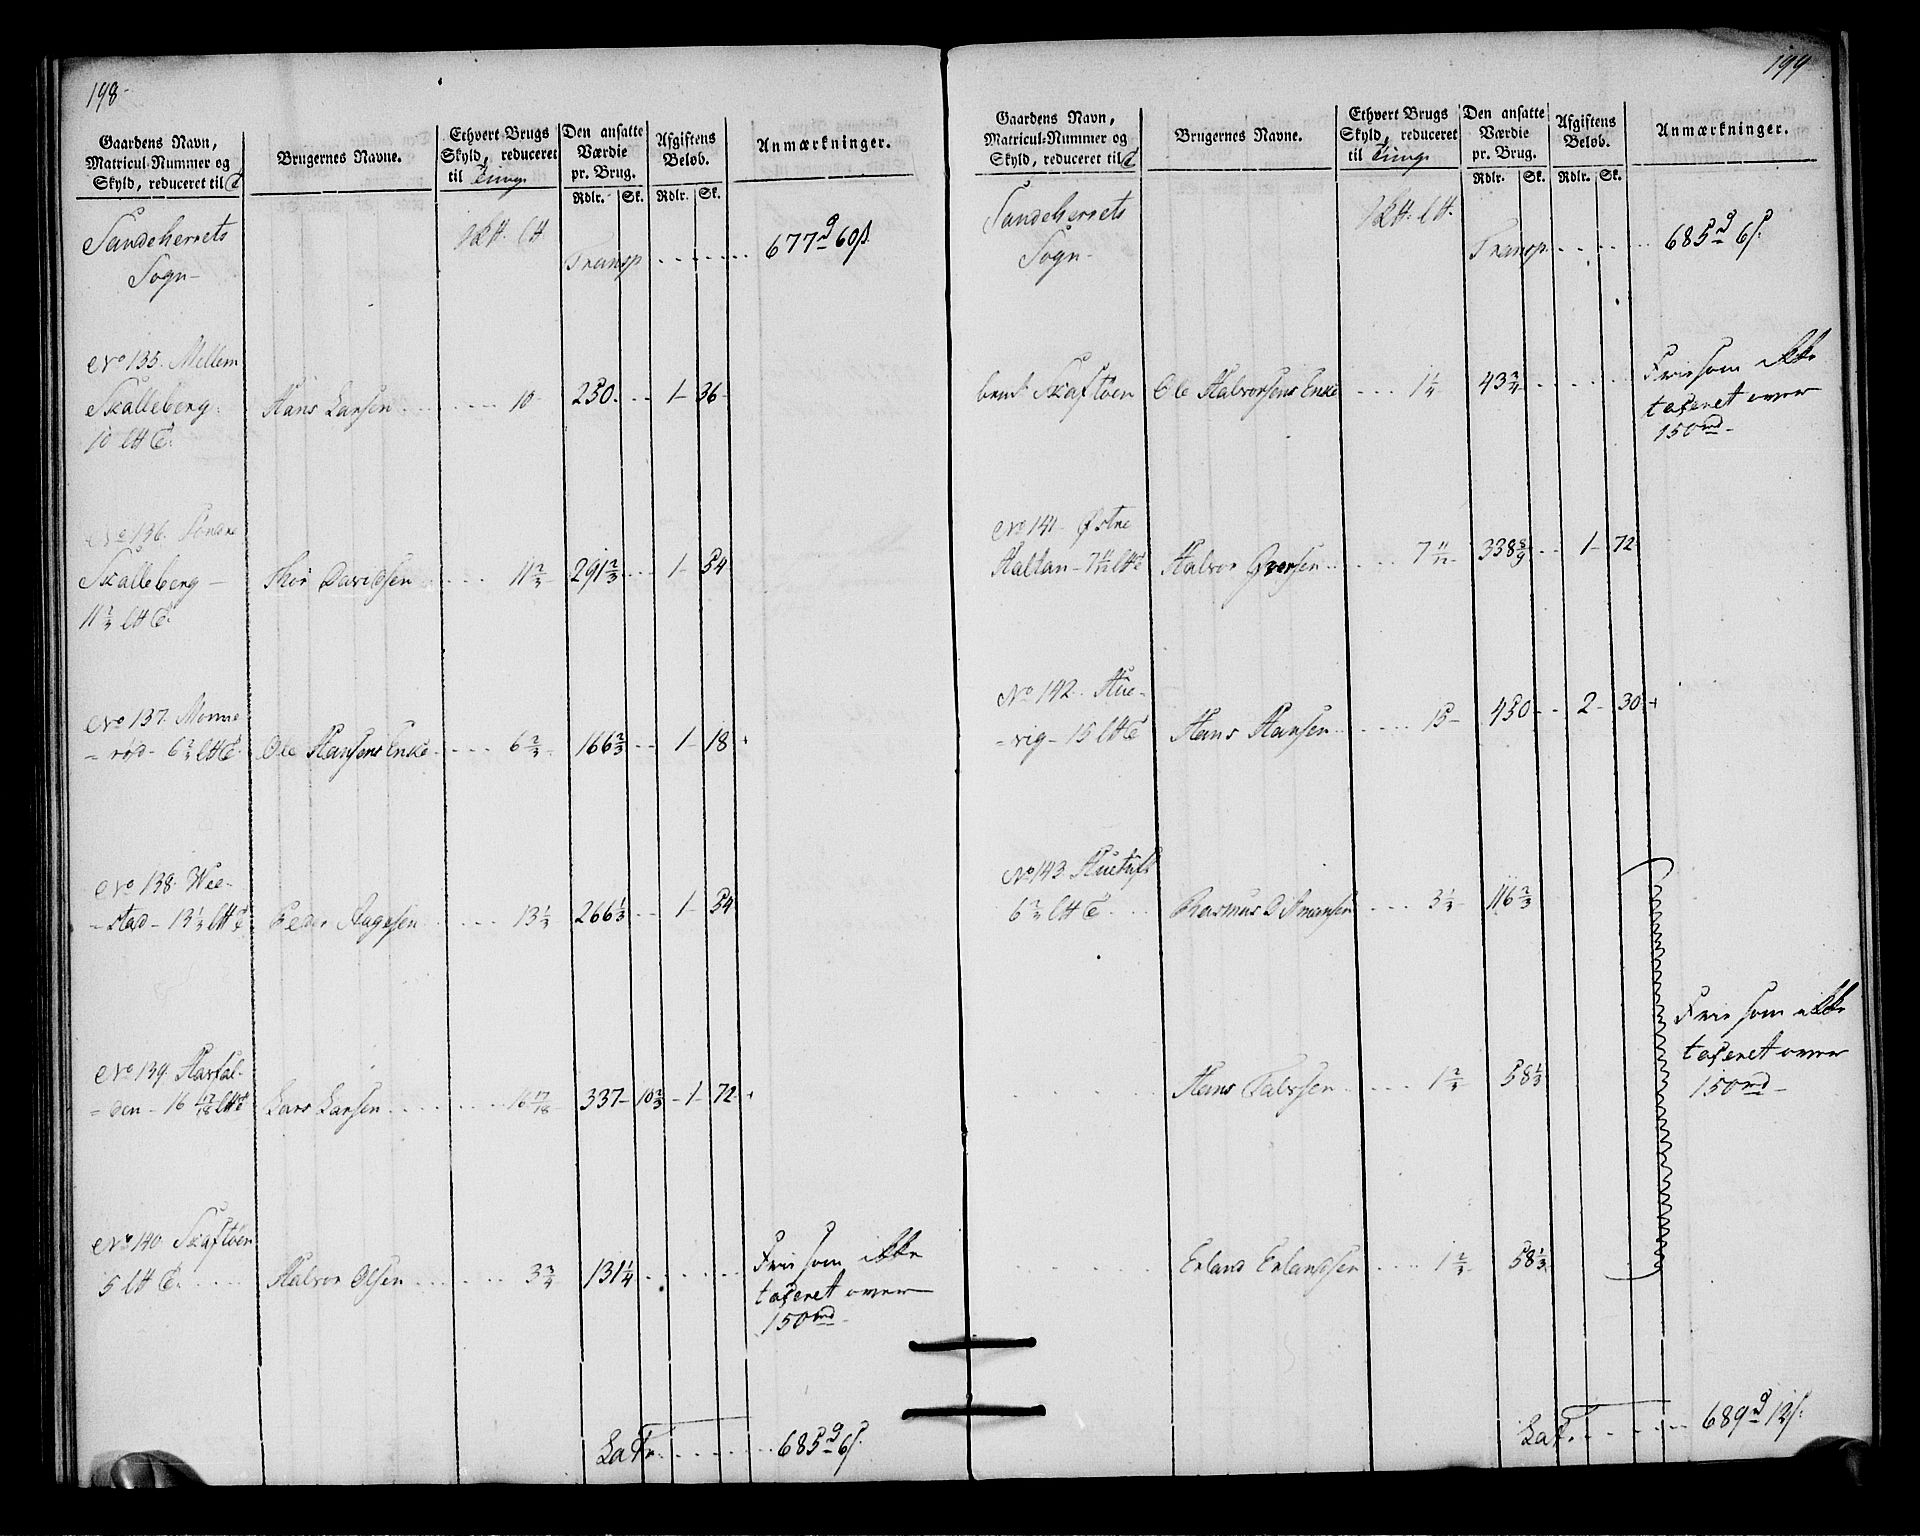 198
Gaardens Navn,
Matricul-Nummer og
Skyld, reduceret til
Brugernes Navne.
Ethvert Brugs
Skyld, reduceret
til Tunge
Den ansatte
Værdie
pr. Brug.
Rdlr. Sk.
Afgiftens
Beløb.
Rdlr. Sk.
Anmærkninger.
Sandeherrets
Sogn
Transp 677 60
No 135. Mellem
Skalleberg
10
Hans Larsen 10 250 1 36
No 136. Søndre
Skalleberg
11 2/3
Thor Davidsen 11 2/3 291 2/3 1 54
No 137. Monne
-rød 6 2/3
Ole Hansens Enke 6 2/3 166 2/3 1 18
No 138. Wee-
-stad 13 1/3
Peder 13 1/3 266 1/3 1 54
No 139. Hasfal-
-den 16 17/18
Lars Larsen 16 17/18 337 10 2/3 1 72
No 140. Skaftøen
5
Halvor Olsen 3 3/4 131 1/4
Frie som ikke
taxeret over
150 rd
Lat. 685 6
199
Gaardens Navn,
Matricul-Nummer og
Skyld, reduceret til
Brugernes Navne.
Ethvert Brugs
Skyld, reduceret
til Tunge
Den ansatte
Værdie
pr. Brug.
Rdlr. Sk.
Afgiftens
Beløb.
Rdlr. Sk.
Anmærkninger.
Sandeherrets
Sogn
Transp 685 6
Skaftøen Ole Halvorsens Enke 1 1/4 43 3/4
Frie som ikke
taxeret over
150 rd
No 141 Østre
Haltan 7 11/12
Halvor 7 11/12 338 8/9 1 72
No 142. Hue-
-vig 15
Hans Hansen 15 450 2 30
No 143
6 2/3
Rasmus 3 1/3 116 2/3
Hans 1 2/3 58 1/3
Frie som ikke
taxeret over
150 rd
Erland Erlandsen 1 2/3 58 1/3
Lat. 689 12